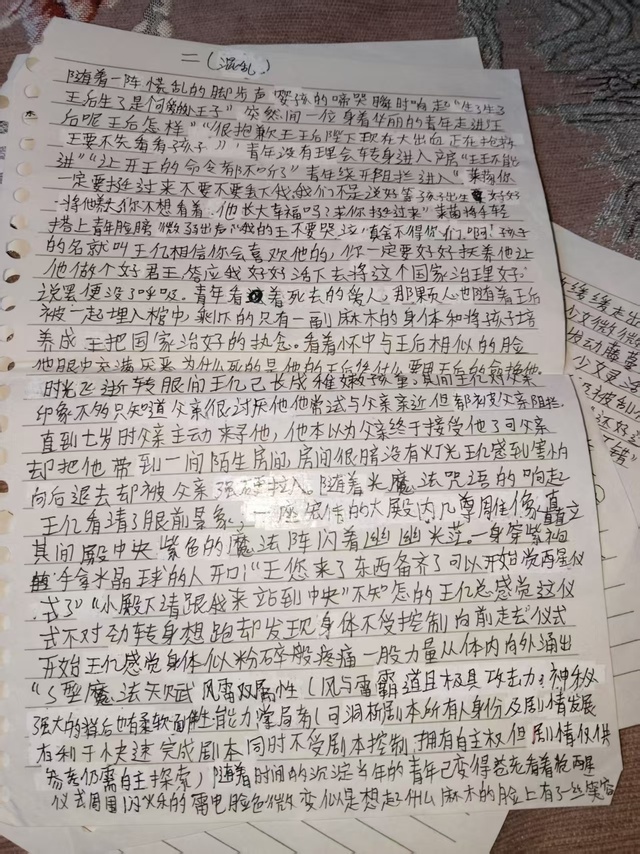 二(混乱)
随着一阵慌乱的脚步声婴孩的啼哭瞬时响起"生了生了
王后生了是个小王子"突然间一位身着华丽的青年走进"王
后呢王后怎样""很抱歉王王后陛下现在大出血正在抢救
王要不先看看孩子"青年没有理会转身进入产房"王王不能
进""让开王的命令都不听了"青年绕开阻拦进入"莱茵你
一定要挺过来不要不要丢下我,我们不是说好等孩子出生好好
将他养大你不想看着他长大幸福吗?求你挺过来"莱茵将手轻
搭上青年脸膀"我的王不要哭这真舍不得你们,啊!孩子
的名就叫王亿相信你会喜欢他的,你一定要好好扶养他让
他做个好君王答应我好好活下去将这个国家治理好"
说罢便没了呼吸。青年看着死去的爱人,那颗心也随着王后
被一起埋入棺中,剩下的只有一副麻木的身体和将孩子培
养成王把国家治好的执念。看着怀中与王后相似的脸
他眼中充满厌恶为什么死的是他的王后凭什么要用王后的命换他
时光飞逝转眼间王亿已长成稚嫩孩童,其间王亿对父亲
印象不多只知道父亲很讨厌他他尝试与父亲亲近但都被父亲阻拦.
直到七岁时父亲主动来寻他,他本以为父亲终于接受他了可父亲
却把他带到一间陌生房间,房间很暗没有灯光王亿感到害怕
向后退去却被父亲强硬拉入。随着光魔法咒语的响起
王亿看清了眼前景象,一座很大的大殿内几尊雕像直立
其间殿中央紫色的魔法阵闪着幽幽光茫。一身穿紫袍
手拿水晶球的人开口"王您来了东西备齐了可以开始觉醒仪
式了""小殿下请跟我来站到中央"不知怎的王亿总感觉这仪
式不对劲转身想跑却发现身体不受控制向前走去"仪式
开始王亿感觉身体似粉碎般疼痛一股力量从体内向外涌出
"S型魔法天赋风雷双属性(风与雷霸道且极具攻击力:神秘
强大的背后也有柔软面)能力掌局者(可洞析剧本所有人身份及剧情发展
有利于快速完成剧本同时不受剧本控制,拥有自主权但剧情仅供
参考仍需自主探索)随着时间的沉淀当年的青年已变得苍老看着觉醒
仪式周围闪烁的雷电脸色微变似是想起什么麻木的脸上有了一丝笑容